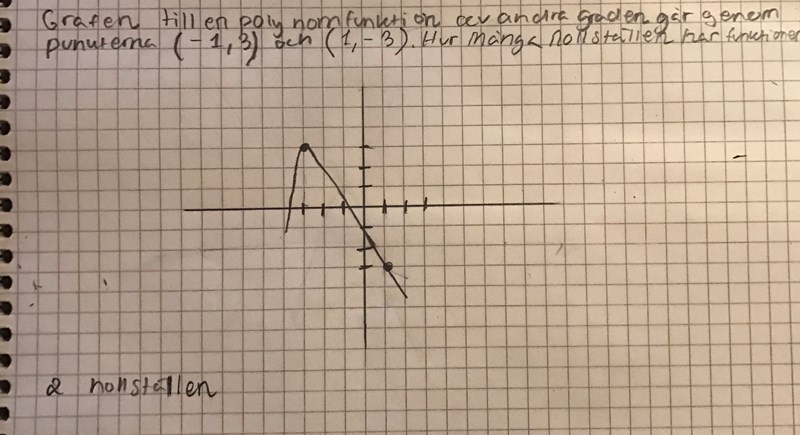 Grafen till en polynomfunktion av andra graden går genom
punkterna (-1,3) och (1,-3). Hur många nollställen har funktionen
2 nollställen